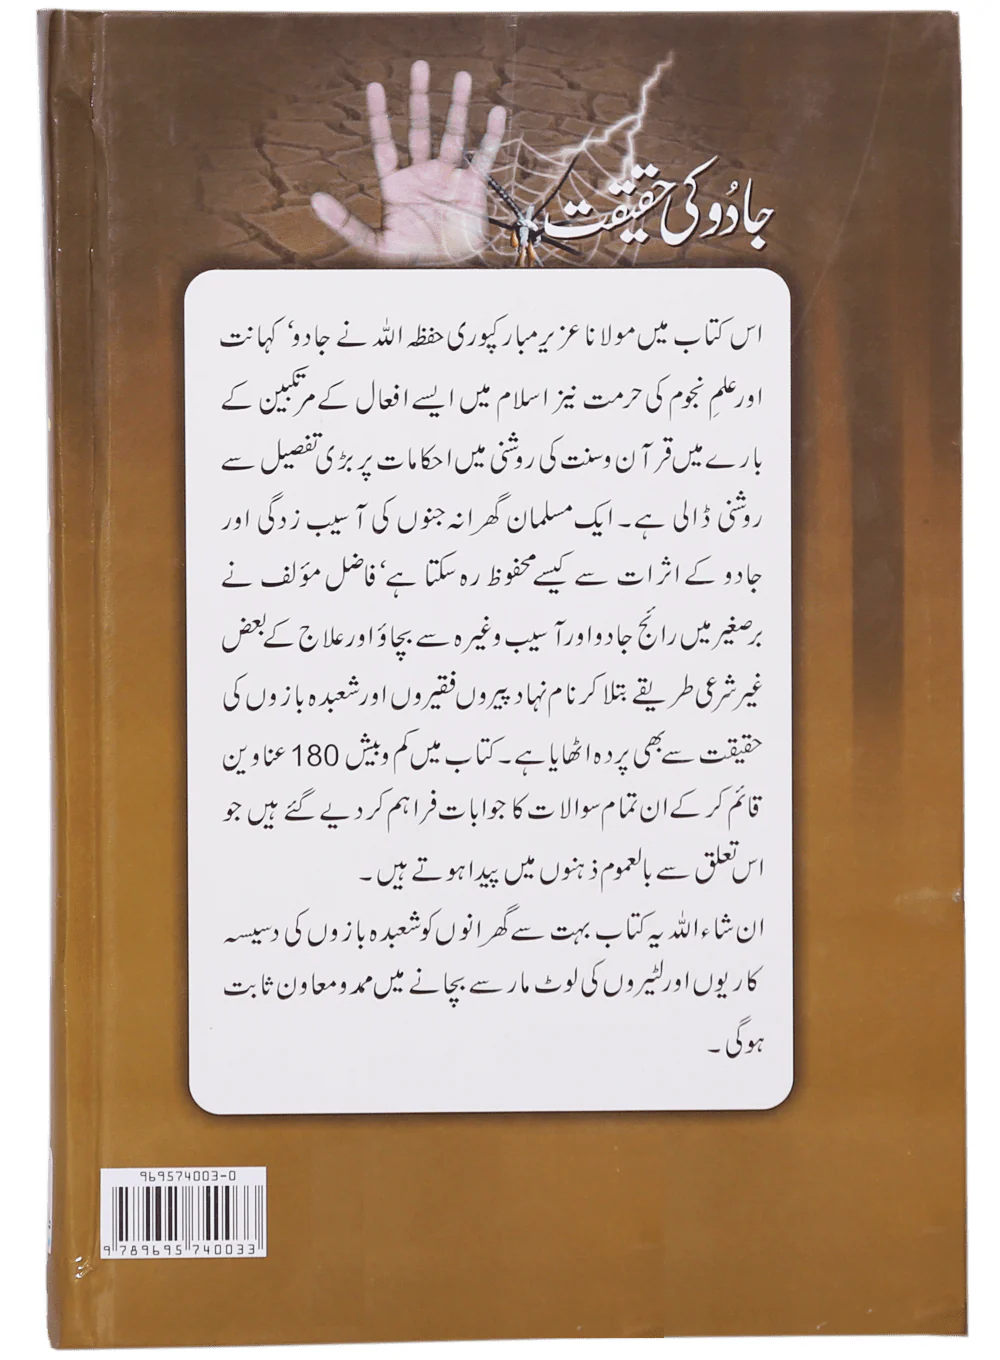 جادُو کی حقیقت
اس کتاب میں مولانا عزیر مبارکپوری حفظہ اللہ نے جادو‘ کہانت
اور علمِ نجوم کی حرمت نیز اسلام میں ایسے افعال کے مرتکبین کے
بارے میں قرآن وسنت کی روشنی میں احکامات پر بڑی تفصیل سے
روشنی ڈالی ہے۔ ایک مسلمان گھرانہ جنوں کی آسیب زدگی اور
جادو کے اثرات سے کیسے محفوظ رہ سکتا ہے‘ فاضل مؤلف نے
برصغیر میں رائج جادو اور آسیب وغیرہ سے بچاؤ اور علاج کے بعض
غیر شرعی طریقے بتلا کر نام نہاد پیروں فقیروں اور شعبدہ بازوں کی
حقیقت سے بھی پردہ اٹھایا ہے۔ کتاب میں کم وبیش 180 عناوین
قائم کر کے ان تمام سوالات کا جوابات فراہم کر دیے گئے ہیں جو
اس تعلق سے بالعموم ذہنوں میں پیدا ہوتے ہیں۔
ان شاء اللہ یہ کتاب بہت سے گھرانوں کو شعبدہ بازوں کی دسیسہ
کاریوں اور لٹیروں کی لوٹ مار سے بچانے میں ممد و معاون ثابت
ہوگی۔
969574003-0
9 789695 740033